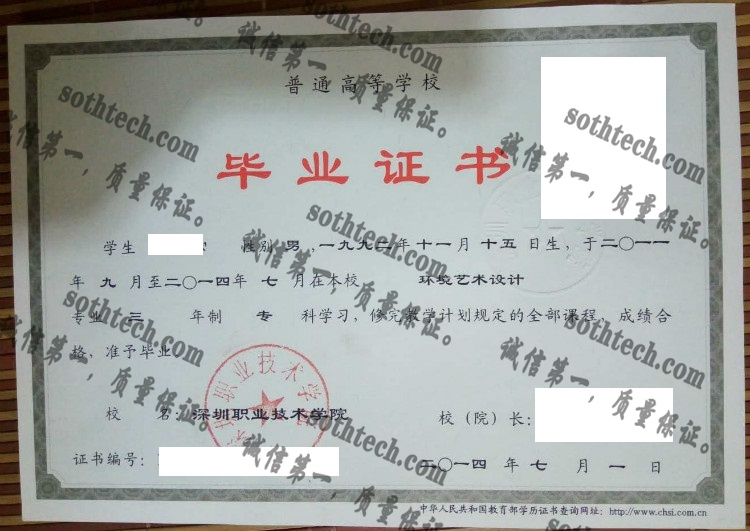 普通高等学校
毕业证书
学生 性别 男，一九九二年十一月十五日生，于二〇一一
年九月至二〇一四年七月在本校 环境艺术设计
专业 三 年制 专 科学习，修完教学计划规定的全部课程，成绩合
格，准予毕业。
校 名：深圳职业技术学院
校（院）长：
证书编号：
二〇一四年七月一日
中华人民共和国教育部学历证书查询网址：http://www.chsi.com.cn
深圳职业技术学院
sothtech.com
诚信第一，质量保证。
sothtech.com
诚信第一，质量保证。
sothtech.com
诚信第一，质量保证。
sothtech.com
诚信第一，质量保证。
sothtech.com
诚信第一，质量保证。
sothtech.com
诚信第一，质量保证。
sothtech.com
诚信第一，质量保证。